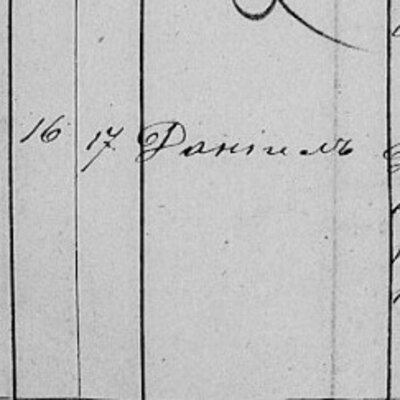 16 17 Даніилъ